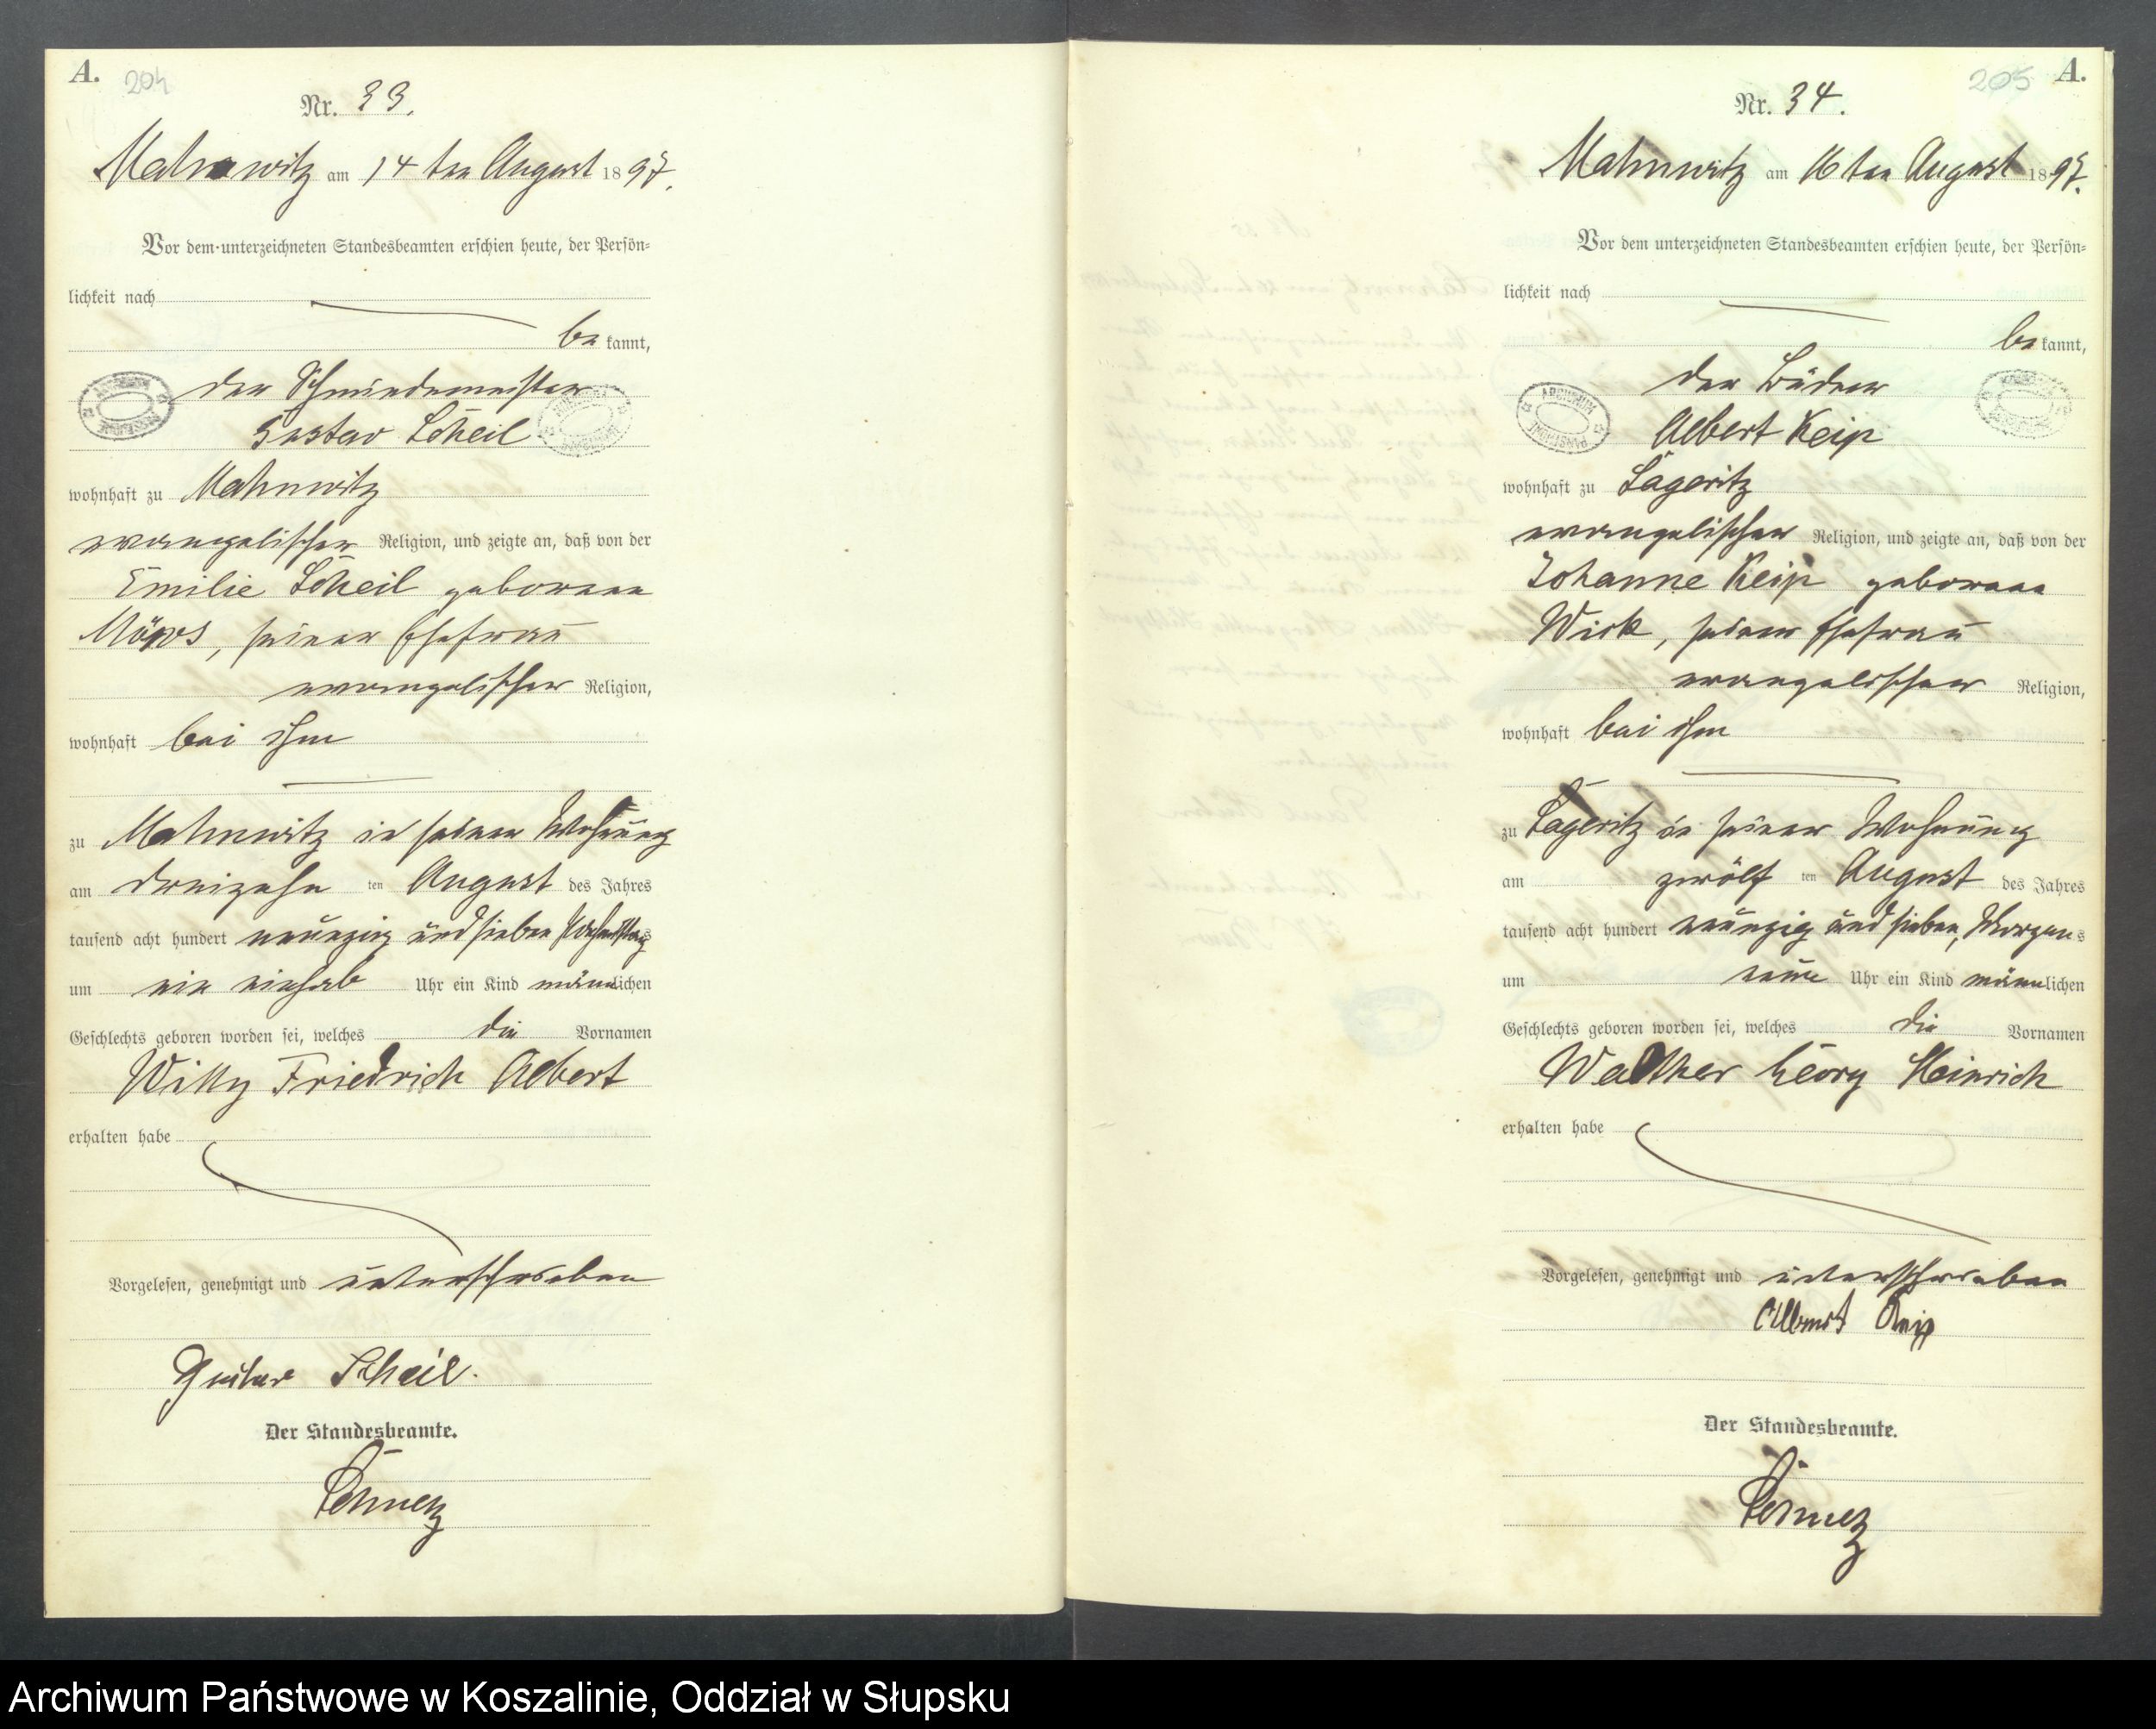 A.
204
Nr. 33.
Mahnwitz am 14ten August 1897.
Vor dem unterzeichneten Standesbeamten erschien heute, der Persön-
lichkeit nach
be kannt,
der Schmiedemeister
Gustav Scheil
wohnhaft zu Mahnwitz
evangelischer Religion, und zeigte an, daß von der
Emilie Scheil geborene
seiner Ehefrau
evangelischer Religion,
wohnhaft bei ihm
zu Mahnwitz in seiner Wohnung
am dreizehn ten August des Jahres
tausend acht hundert neunzig und sieben
um ein einhalb Uhr ein Kind männlichen
Geschlechts geboren worden sei, welches die Vornamen
Willy Friedrich Albert
erhalten habe
Vorgelesen, genehmigt und unterschrieben
Gustav Scheil.
Der Standesbeamte.
A.
205
Nr. 34.
Mahnwitz am 16ten August 1897.
Vor dem unterzeichneten Standesbeamten erschien heute, der Persön-
lichkeit nach
be kannt,
der Büdner
Albert Keip
wohnhaft zu Lageritz
evangelischer Religion, und zeigte an, daß von der
Johanne Keip geborene
Wick, seiner Ehefrau
evangelischer Religion,
wohnhaft bei ihm
zu Lageritz in seiner Wohnung
am zwölf ten August des Jahres
tausend acht hundert neunzig und sieben, Morgens
um neun Uhr ein Kind männlichen
Geschlechts geboren worden sei, welches die Vornamen
Walther Georg Heinrich
erhalten habe
Vorgelesen, genehmigt und unterschrieben
Albert Keip
Der Standesbeamte.
Archiwum Państwowe w Koszalinie, Oddział w Słupsku